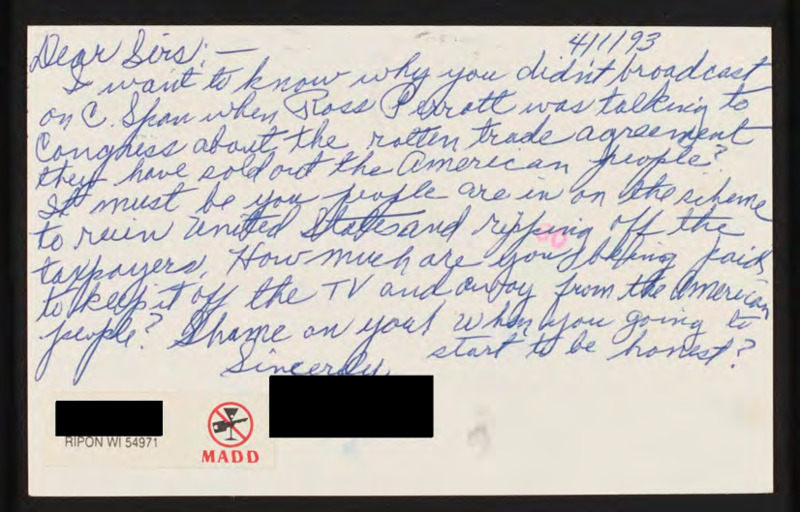 4/1/93
Dear Sirs: —
I want to know why you didn't broadcast
on C. Span when Ross Perrott was talking to
Congress about the rotten trade agreement
they have sold out the American people?
It must be you people are in on the scheme
to ruin United States and ripping off the
taxpayers. How much are you being paid
to keep it off the TV and away from the American
people? Shame on you! When you going to
start to be honest?
Sincerely
RIPON WI 54971
MADD